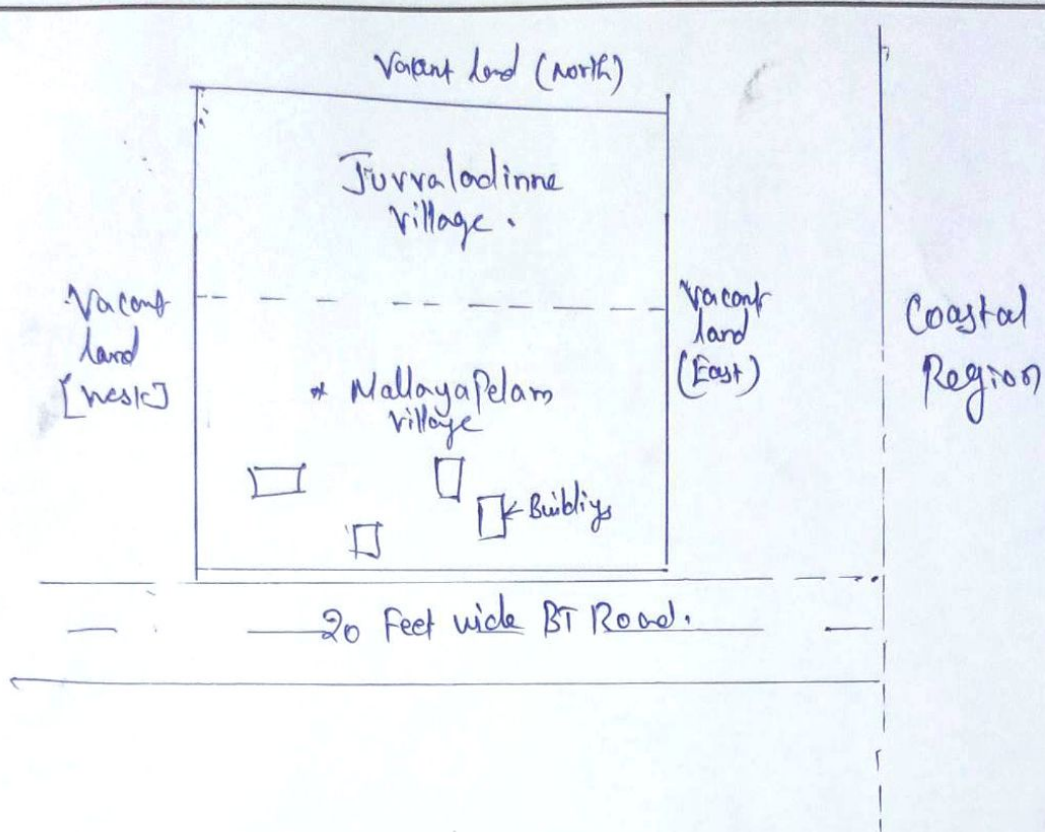 Vacant land (North)
Juvvaladinne
village.
Vacant
land
[West]
Vacant
land
(East)
Coastal
Region
* Mallayapelam
village
← Buibliys
20 Feet wide BT Road.